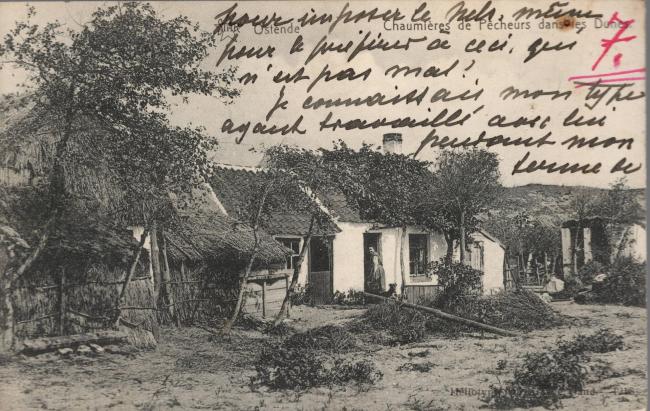 pour imposer le Nels, même
Ostende Chaumières de Pêcheurs dans les Dunes
pour le préférer à ceci, qui
7.
n'est pas mal!
Je connaissais mon type
ayant travaillé avec lui
pendant mon
terme de